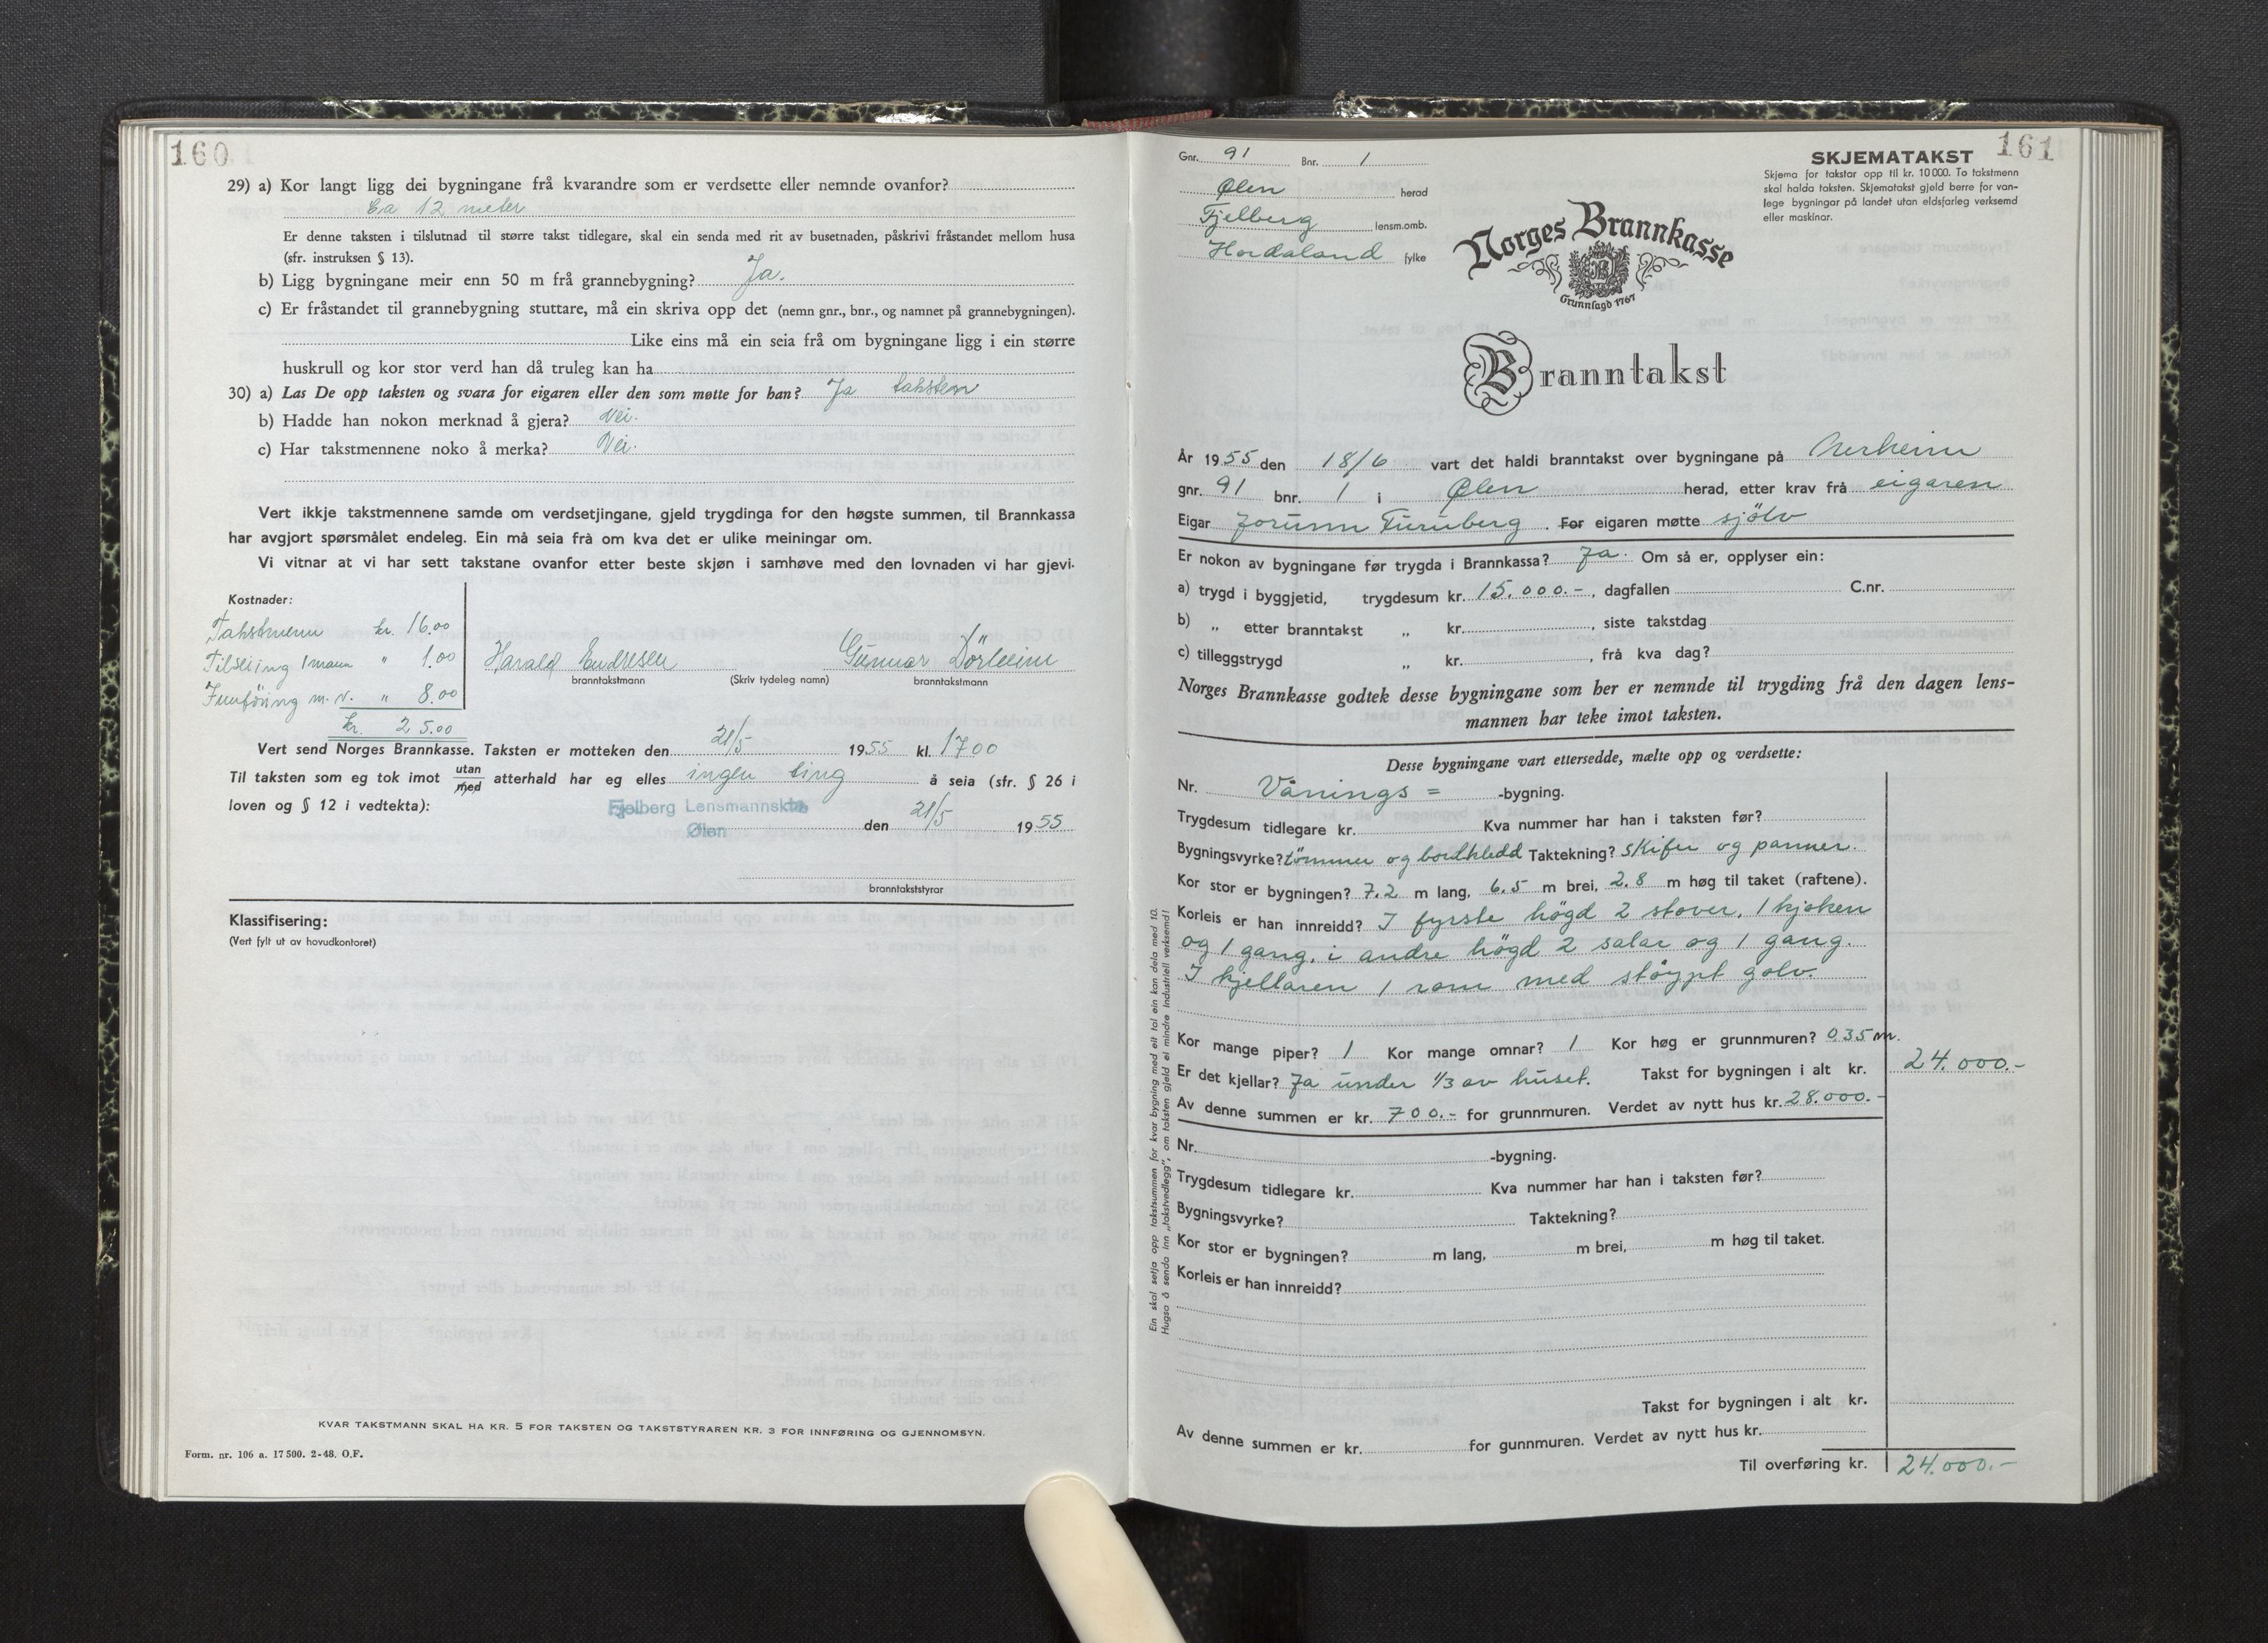 160
29) a) Kor langt ligg dei bygningane frå kvarandre som er verdsette eller nemnde ovanfor?
Ca 12 meter
Er denne taksten i tilslutnad til større takst tidlegare, skal ein senda med rit av busetnaden, påskrivi fråstandet mellom husa
(sfr. instruksen § 13).
b) Ligg bygningane meir enn 50 m frå grannebygning? Ja.
c) Er fråstandet til grannebygning stuttare, må ein skriva opp det (nemn gnr., bnr., og namnet på grannebygningen).
Like eins må ein seia frå om bygningane ligg i ein større
huskrull og kor stor verd han då truleg kan ha
30) a) Las De opp taksten og svara for eigaren eller den som møtte for han? Ja taksten
b) Hadde han nokon merknad å gjera? Nei.
c) Har takstmennene noko å merka? Nei.
Vert ikkje takstmennene samde om verdsetjingane, gjeld trygdinga for den høgste summen, til Brannkassa
har avgjort spørsmålet endeleg. Ein må seia frå om kva det er ulike meiningar om.
Vi vitnar at vi har sett takstane ovanfor etter beste skjøn i samhøve med den lovnaden vi har gjevi.
Kostnader:
Takstmenn kr. 16.00
Tilseiing 1 mann " 1.00
Innföring m. v. " 8.00
kr. 25.00
Harald Endresen
Gunnar Dörheim
branntakstmann (Skriv tydeleg namn) branntakstmann
Vert send Norges Brannkasse. Taksten er motteken den 21/5 1955 kl. 1700
Til taksten som eg tok imot utan/med atterhald har eg elles ingen ting å seia (sfr. § 26 i
loven og § 12 i vedtekta):
Fjelberg Lensmannsktr.
Ølen
den 21/5 1955
branntakststyrar
Klassifisering:
(Vert fylt ut av hovudkontoret)
KVAR TAKSTMANN SKAL HA KR. 5 FOR TAKSTEN OG TAKSTSTYRAREN KR. 3 FOR INNFØRING OG GJENNOMSYN.
Form. nr. 106 a. 17 500. 2-48. O.F.
161
Gnr. 91 Bnr. 1
Ølen herad
Fjelberg lensm.omb.
Hordaland fylke
SKJEMATAKST
Skjema for takstar opp til kr. 10 000. To takstmenn
skal halda taksten. Skjematakst gjeld berre for van-
lege bygningar på landet utan eldsfarleg verksemd
eller maskinar.
Norges Brannkasse
Grunnlagd 1767
Branntakst
År 1955 den 18/6 vart det haldi branntakst over bygningane på Nerheim
gnr. 91 bnr. 1 i Ølen herad, etter krav frå eigaren
Eigar Jorunn Furuberg. For eigaren møtte sjölv
Er nokon av bygningane før trygda i Brannkassa? Ja. Om så er, opplyser ein:
a) trygd i byggjetid, trygdesum kr. 15.000.-, dagfallen C.nr.
b) „ etter branntakst „ kr. , siste takstdag
c) tilleggstrygd „ kr. , frå kva dag?
Norges Brannkasse godtek desse bygningane som her er nemnde til trygding frå den dagen lens-
mannen har teke imot taksten.
Desse bygningane vart ettersedde, mælte opp og verdsette:
Nr. Vånings = -bygning.
Trygdesum tidlegare kr. Kva nummer har han i taksten før?
Bygningsvyrke? tömmer og bordkledd Taktekning? skifer og panner.
Kor stor er bygningen? 7.2 m lang, 6.5 m brei, 2.8 m høg til taket (raftene).
Korleis er han innreidd? I fyrste högd 2 stover, 1 kjøken
og 1 gang, i andre högd 2 salar og 1 gang.
I kjellaren 1 rom med støypt golv.
Kor mange piper? 1 Kor mange omnar? 1 Kor høg er grunnmuren? 0.35 m.
Er det kjellar? Ja under 1/3 av huset. Takst for bygningen i alt kr. 24.000.-
Av denne summen er kr. 700.- for grunnmuren. Verdet av nytt hus kr. 28.000.-
Nr. -bygning.
Trygdesum tidlegare kr. Kva nummer har han i taksten før?
Bygningsvyrke? Taktekning?
Kor stor er bygningen? m lang, m brei, m høg til taket.
Korleis er han innreidd?
Takst for bygningen i alt kr.
Av denne summen er kr. for gunnmuren. Verdet av nytt hus kr.
Til overføring kr. 24.000.-
Ein skal setja opp takstsummen for kvar bygning med eit tal ein kan dela med 10.
Hugsa å senda inn „takstvedlegg", om taksten gjeld ei mindre industriell verksemd!